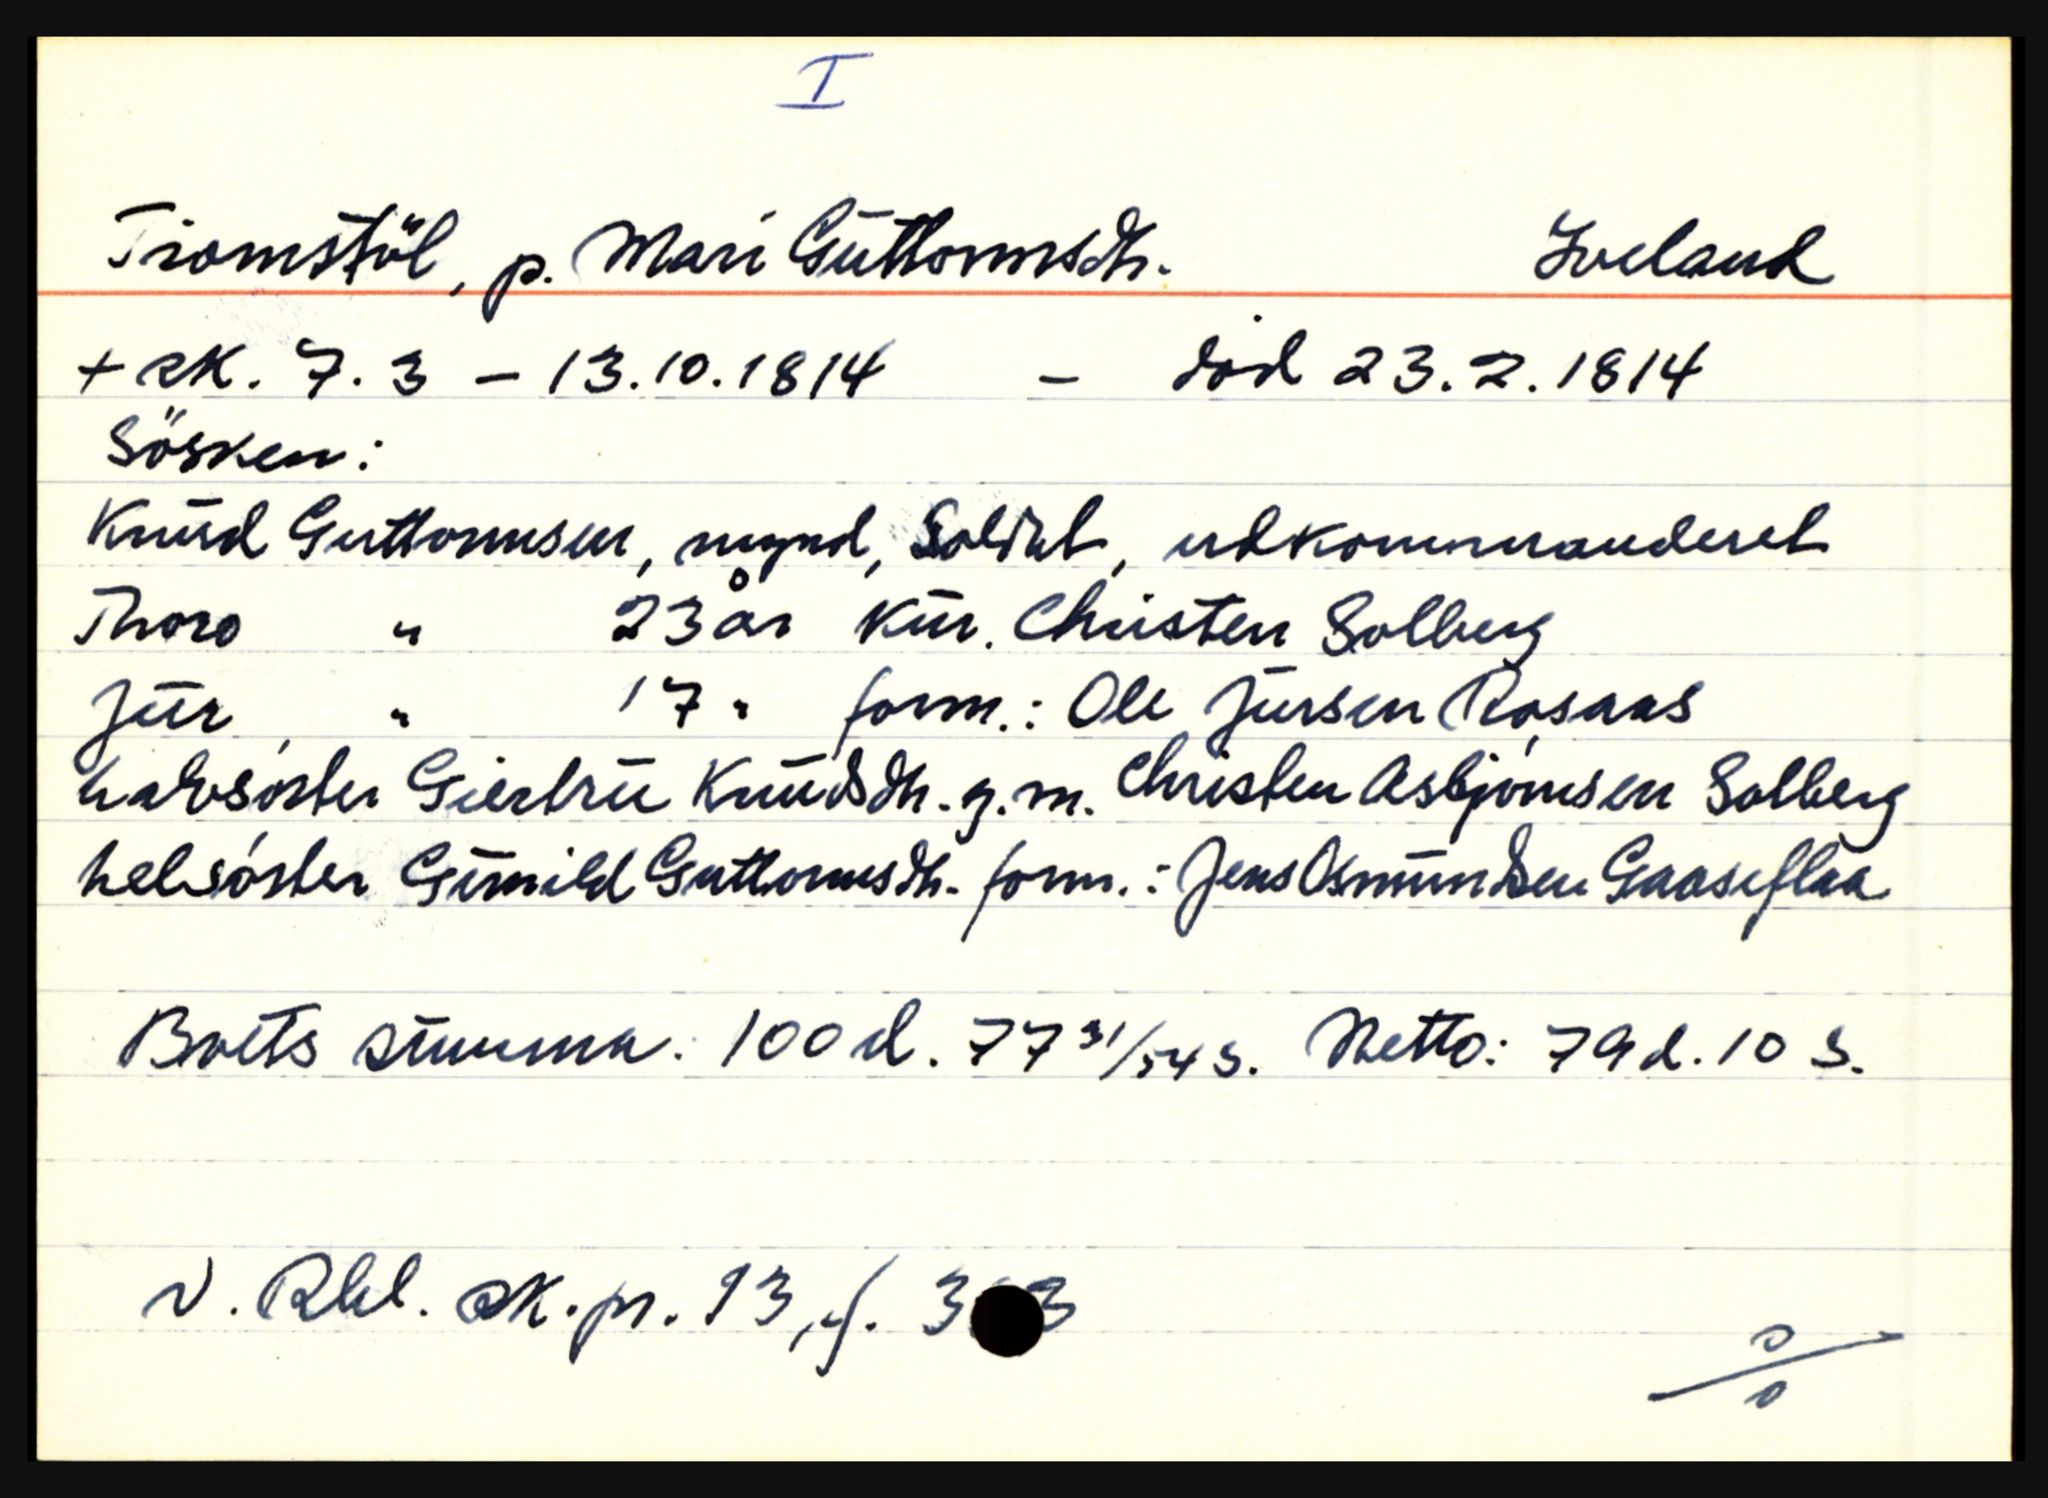 I
Tiomstöl, p. Mari Guttormsdtr. Iveland
+ sk. 7.3 – 13.10.1814 – död 23.2.1814
Sösken:
Knud Guttormsen, mynd, Soldat, udkommanderet
Thoro " 23 år kur. Christen Solberg
Jur " 17 " form.: Ole Jursen Rosaas
halvsöster Giertru Knudsdtr. g.m. Christen Asbjörnsen Solberg
helsöster Gunild Guttormsdtr. form.: Jens Osmundsen Gaaseflaa
Boets summa: 100 d. 77 31/54 s. Netto: 79 d. 10 s.
N. Rbl. sk.pr. 13, f.